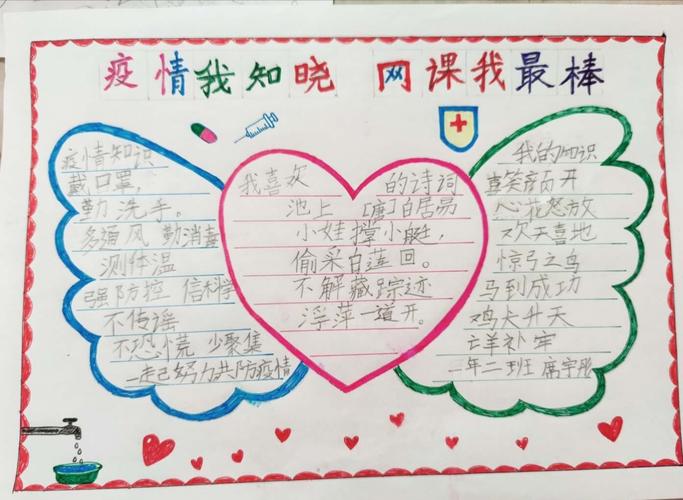 疫情我知晓 网课我最棒
疫情知识
戴口罩,
勤洗手。
多通风 勤消毒
测体温
强防控 信科学
不传谣
不恐慌 少聚集
一起努力共防疫情
我喜欢 的诗词
池上 [唐]白居易
小娃撑小艇,
偷采白莲回。
不解藏踪迹
浮萍一道开。
我的知识
喜笑颜开
心花怒放
欢天喜地
惊弓之鸟
马到成功
鸡犬升天
亡羊补牢
一年二班 席宇